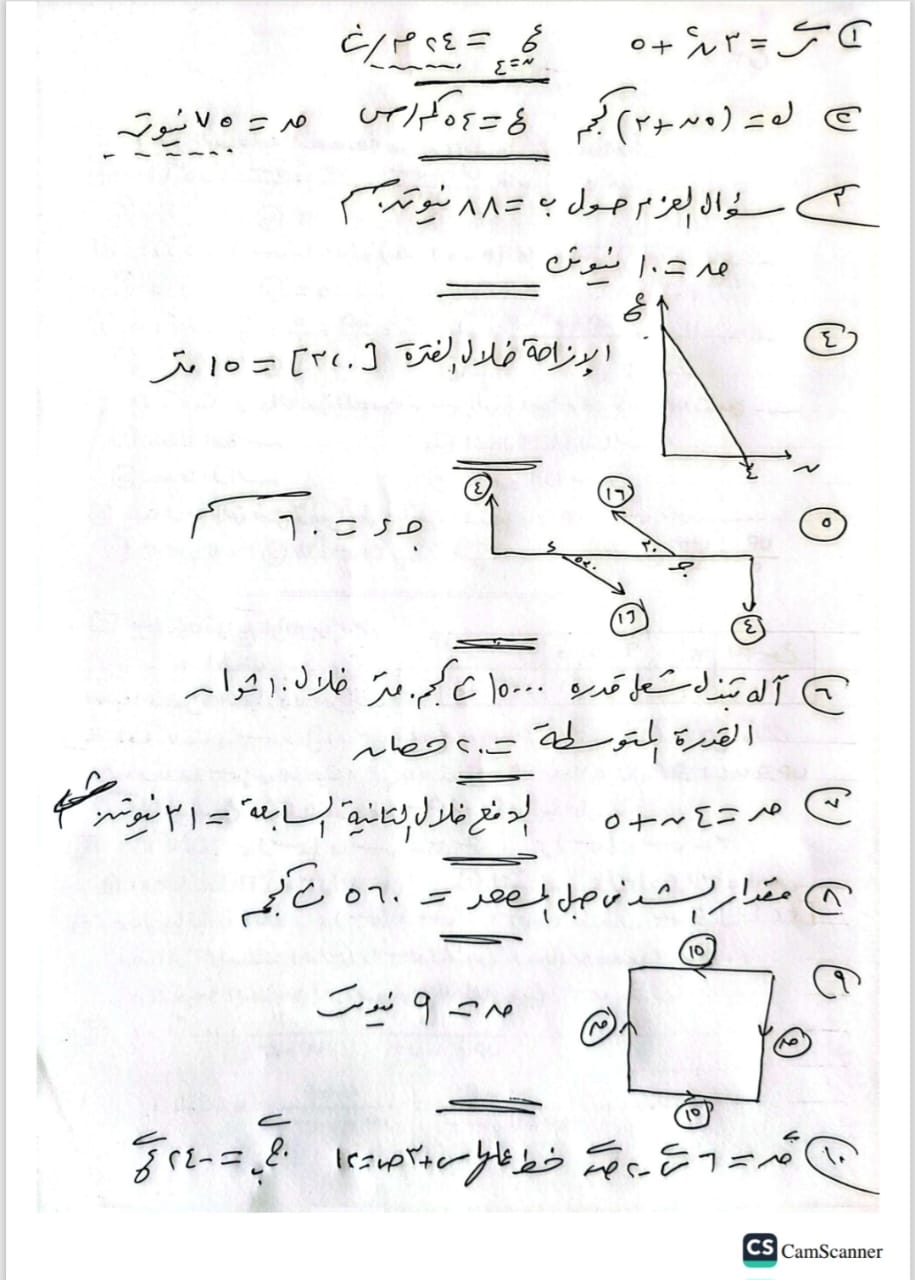 ١ س = ٣ن٢ + ٥ ع ن=٤ = ٢٤ م/ث
٢ ك = (٥ن + ٣) كجم ع = ٥٤ كم/س ق = ٧٥ نيوتن
٣ سؤال العزم حول ب = ٨٨ نيوتن.م
ق = ١٠ نيوتن
ع
٤
الإزاحة خلال الفترة [٠، ٣] = ١٥ متر
ن ٤
٥ ٤ ١٦
جـ ء = ٦٠ سم
ء ٣٠ ٣٠ جـ
١٦ ٤
٦ آلة تبذل شغل قدره ١٥٠٠٠ ث كجم.متر خلال ١٠ ثوان
القدرة المتوسطة = ٢٠ حصان
٧ ق = ٤ن + ٥ الدفع خلال الثانية السابعة = ٣١ نيوتن.ث
٨ مقدار الشد في حبل المصعد = ٥٦٠ ث كجم
١٥
٩
ق = ٩ نيوتن
١٥
١٠ ق = ٦ س - ٢ ص خط عملها س + ٣ص = ١٢ ج ب = -٢٤ ع
CS CamScanner